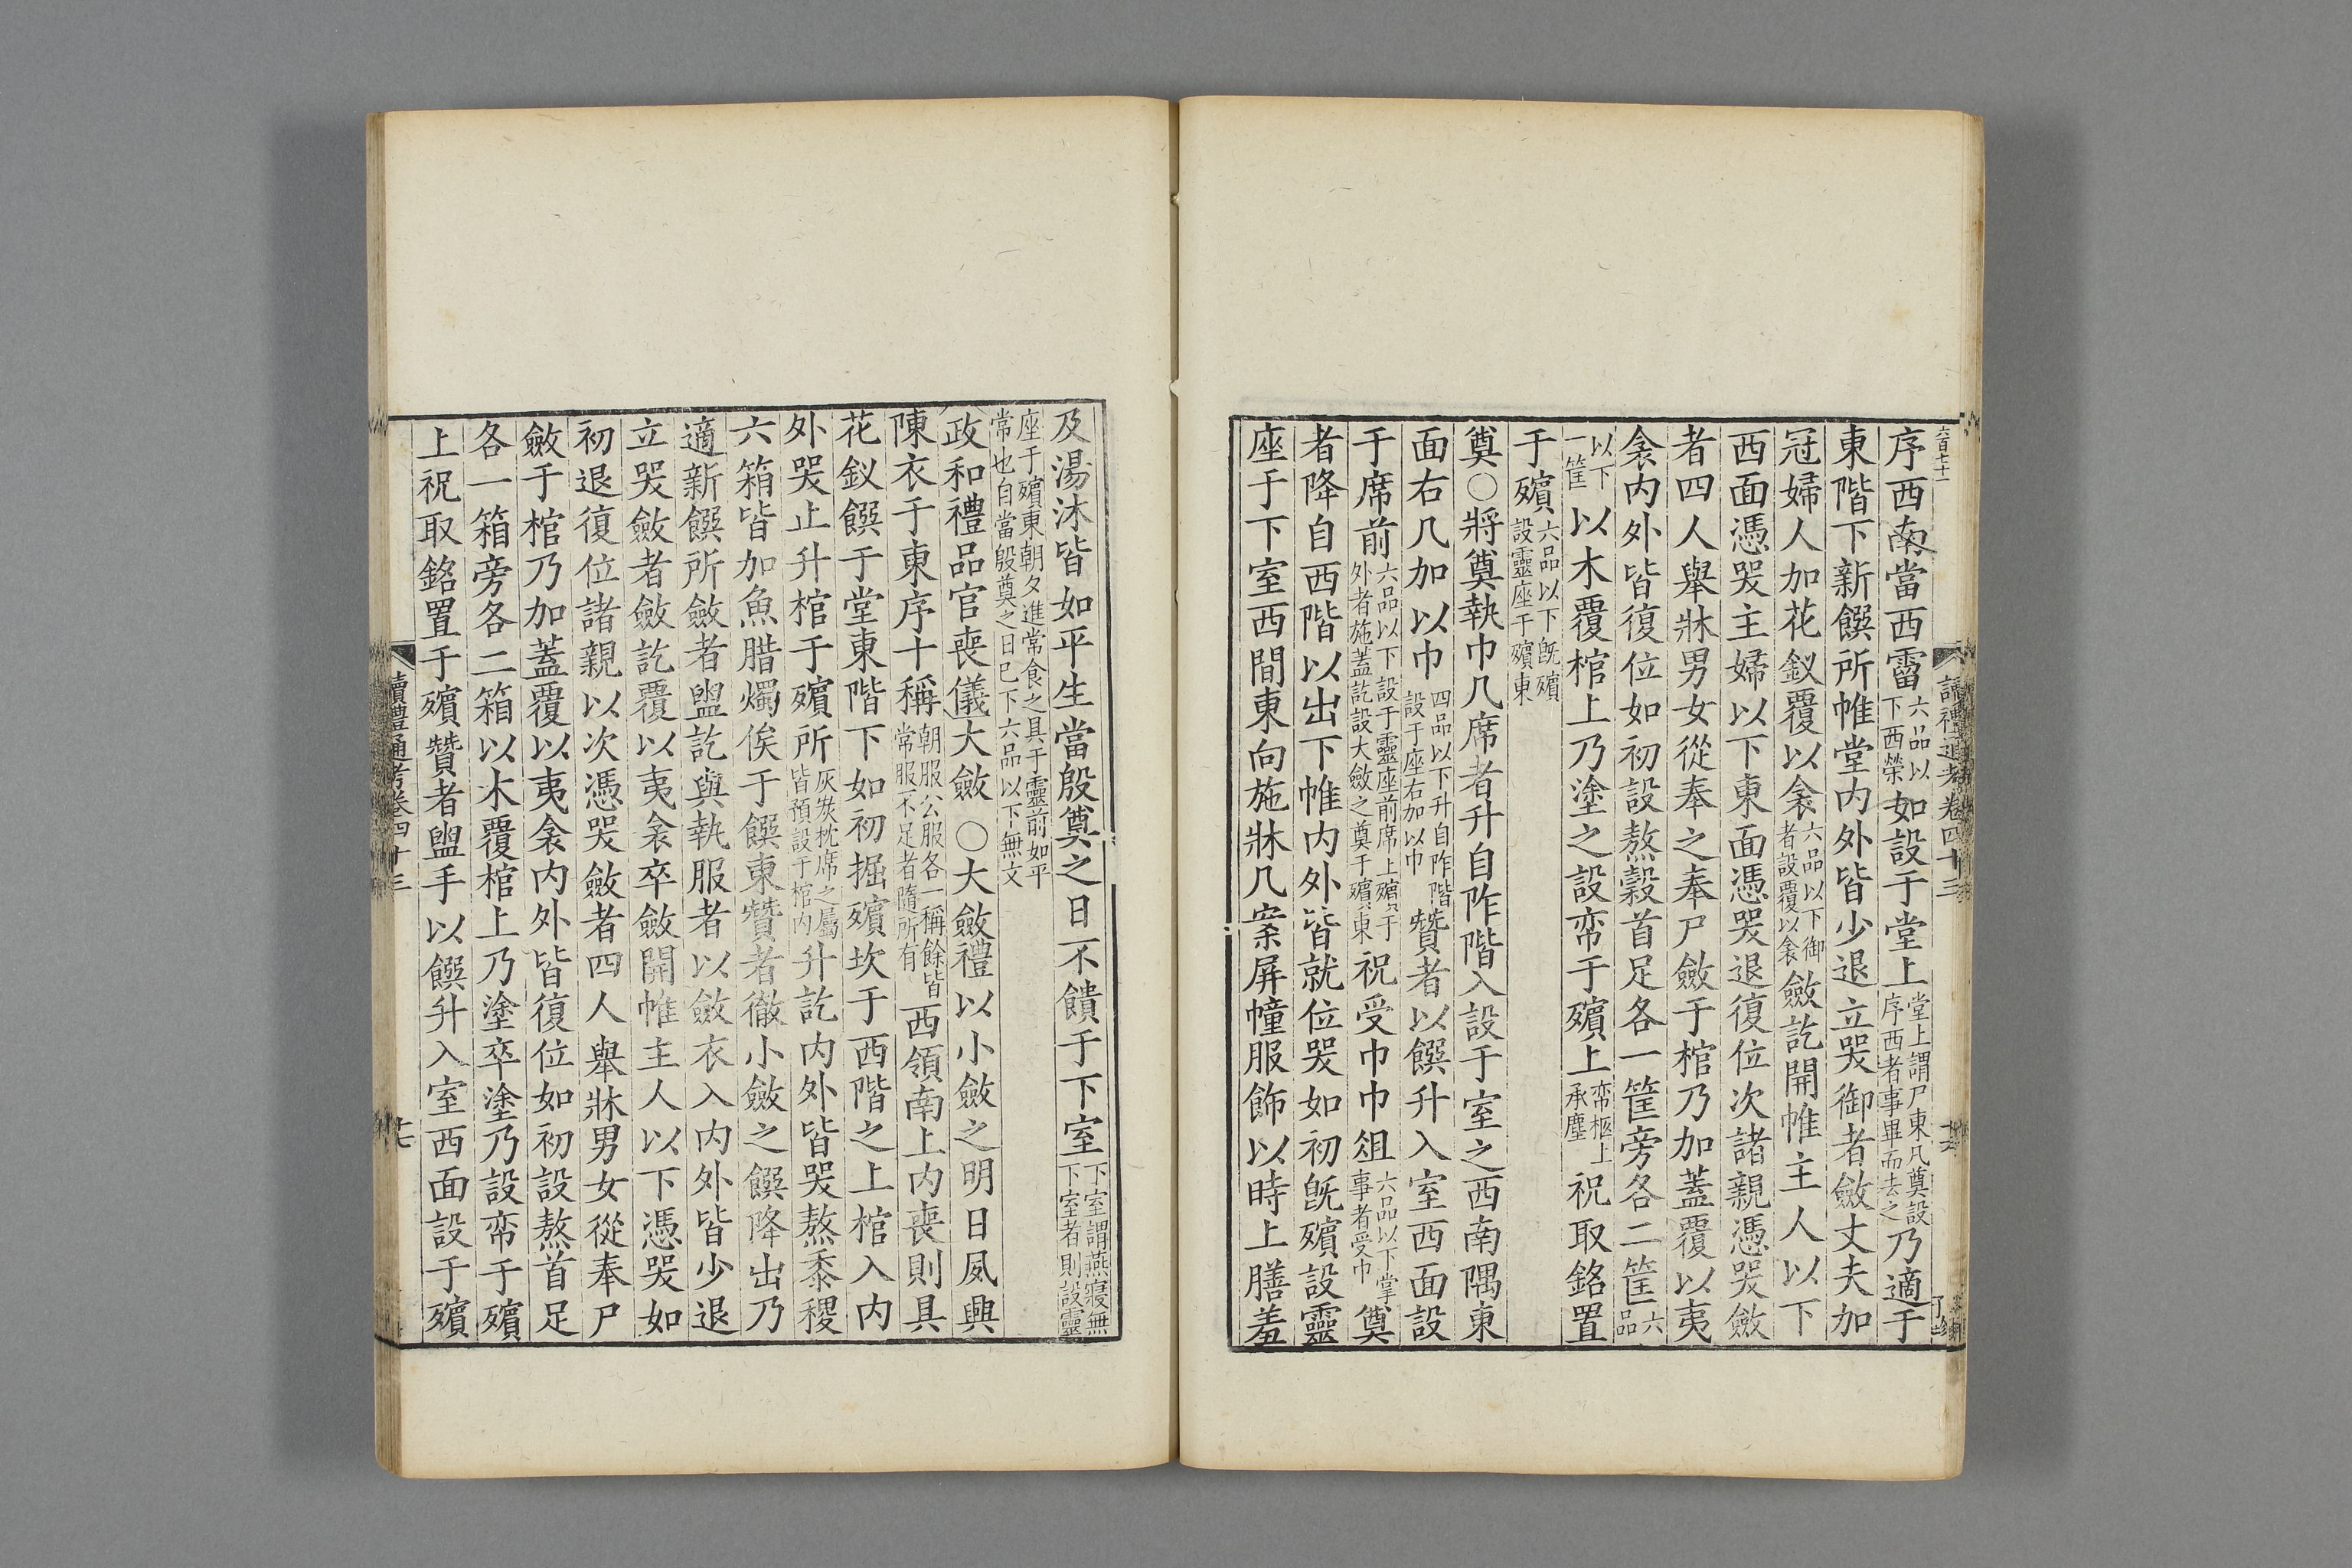 序西南當西霤六品以下西榮如設于堂上堂上謂尸東凡奠設序西者事畢而去之乃適于
東階下新饌所帷堂内外皆少退立哭御者斂丈夫加
冠婦人加花釵覆以衾六品以下御者設覆以衾斂訖開帷主人以下
西面憑哭主婦以下東面憑哭退復位次諸親憑哭斂
者四人舉牀男女從奉之奉尸斂于棺乃加蓋覆以夷
衾内外皆復位如初設熬穀首足各一筐旁各二筐六品
以下一筐以木覆棺上乃塗之設帟于殯上帟柩上承塵祝取銘置
于殯六品以下旣殯設靈座于殯東
奠○將奠執巾几席者升自阼階入設于室之西南隅東
面右几加以巾四品以下升自阼階設于座右加以巾贊者以饌升入室西面設
于席前六品以下設于靈座前席上殯于外者施蓋訖設大斂之奠于殯東祝受巾巾俎六品以下掌事者受巾奠
者降自西階以出下帷内外皆就位哭如初旣殯設靈
座于下室西間東向施牀几案屏幢服飾以時上膳羞
及湯沐皆如平生當殷奠之日不饋于下室下室謂燕寢無下室者則設靈
座于殯東朝夕進常食之具于靈前如平常也自當殷奠之日已下六品以下無文
政和禮品官喪儀大斂○大斂禮以小斂之明日夙興
陳衣于東序十稱朝服公服各一稱餘皆常服不足者隨所有西領南上内喪則具
花釵饌于堂東階下如初掘殯坎于西階之上棺入内
外哭止升棺于殯所灰炭枕席之屬皆預設于棺内升訖内外皆哭熬黍稷
六箱皆加魚腊燭俟于饌東贊者徹小斂之饌降出乃
適新饌所斂者盥訖與執服者以斂衣入内外皆少退
立哭斂者斂訖覆以夷衾卒斂開帷主人以下憑哭如
初退復位諸親以次憑哭斂者四人舉牀男女從奉尸
斂于棺乃加蓋覆以夷衾内外皆復位如初設熬首足
各一箱旁各二箱以木覆棺上乃塗卒塗乃設帟于殯
上祝取銘置于殯贊者盥手以饌升入室西面設于殯
讀禮通考卷四十三